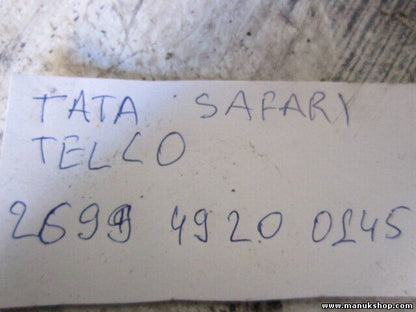 TATA SAFARY
TELCO
2699 4920 0145
www.manukshop.com